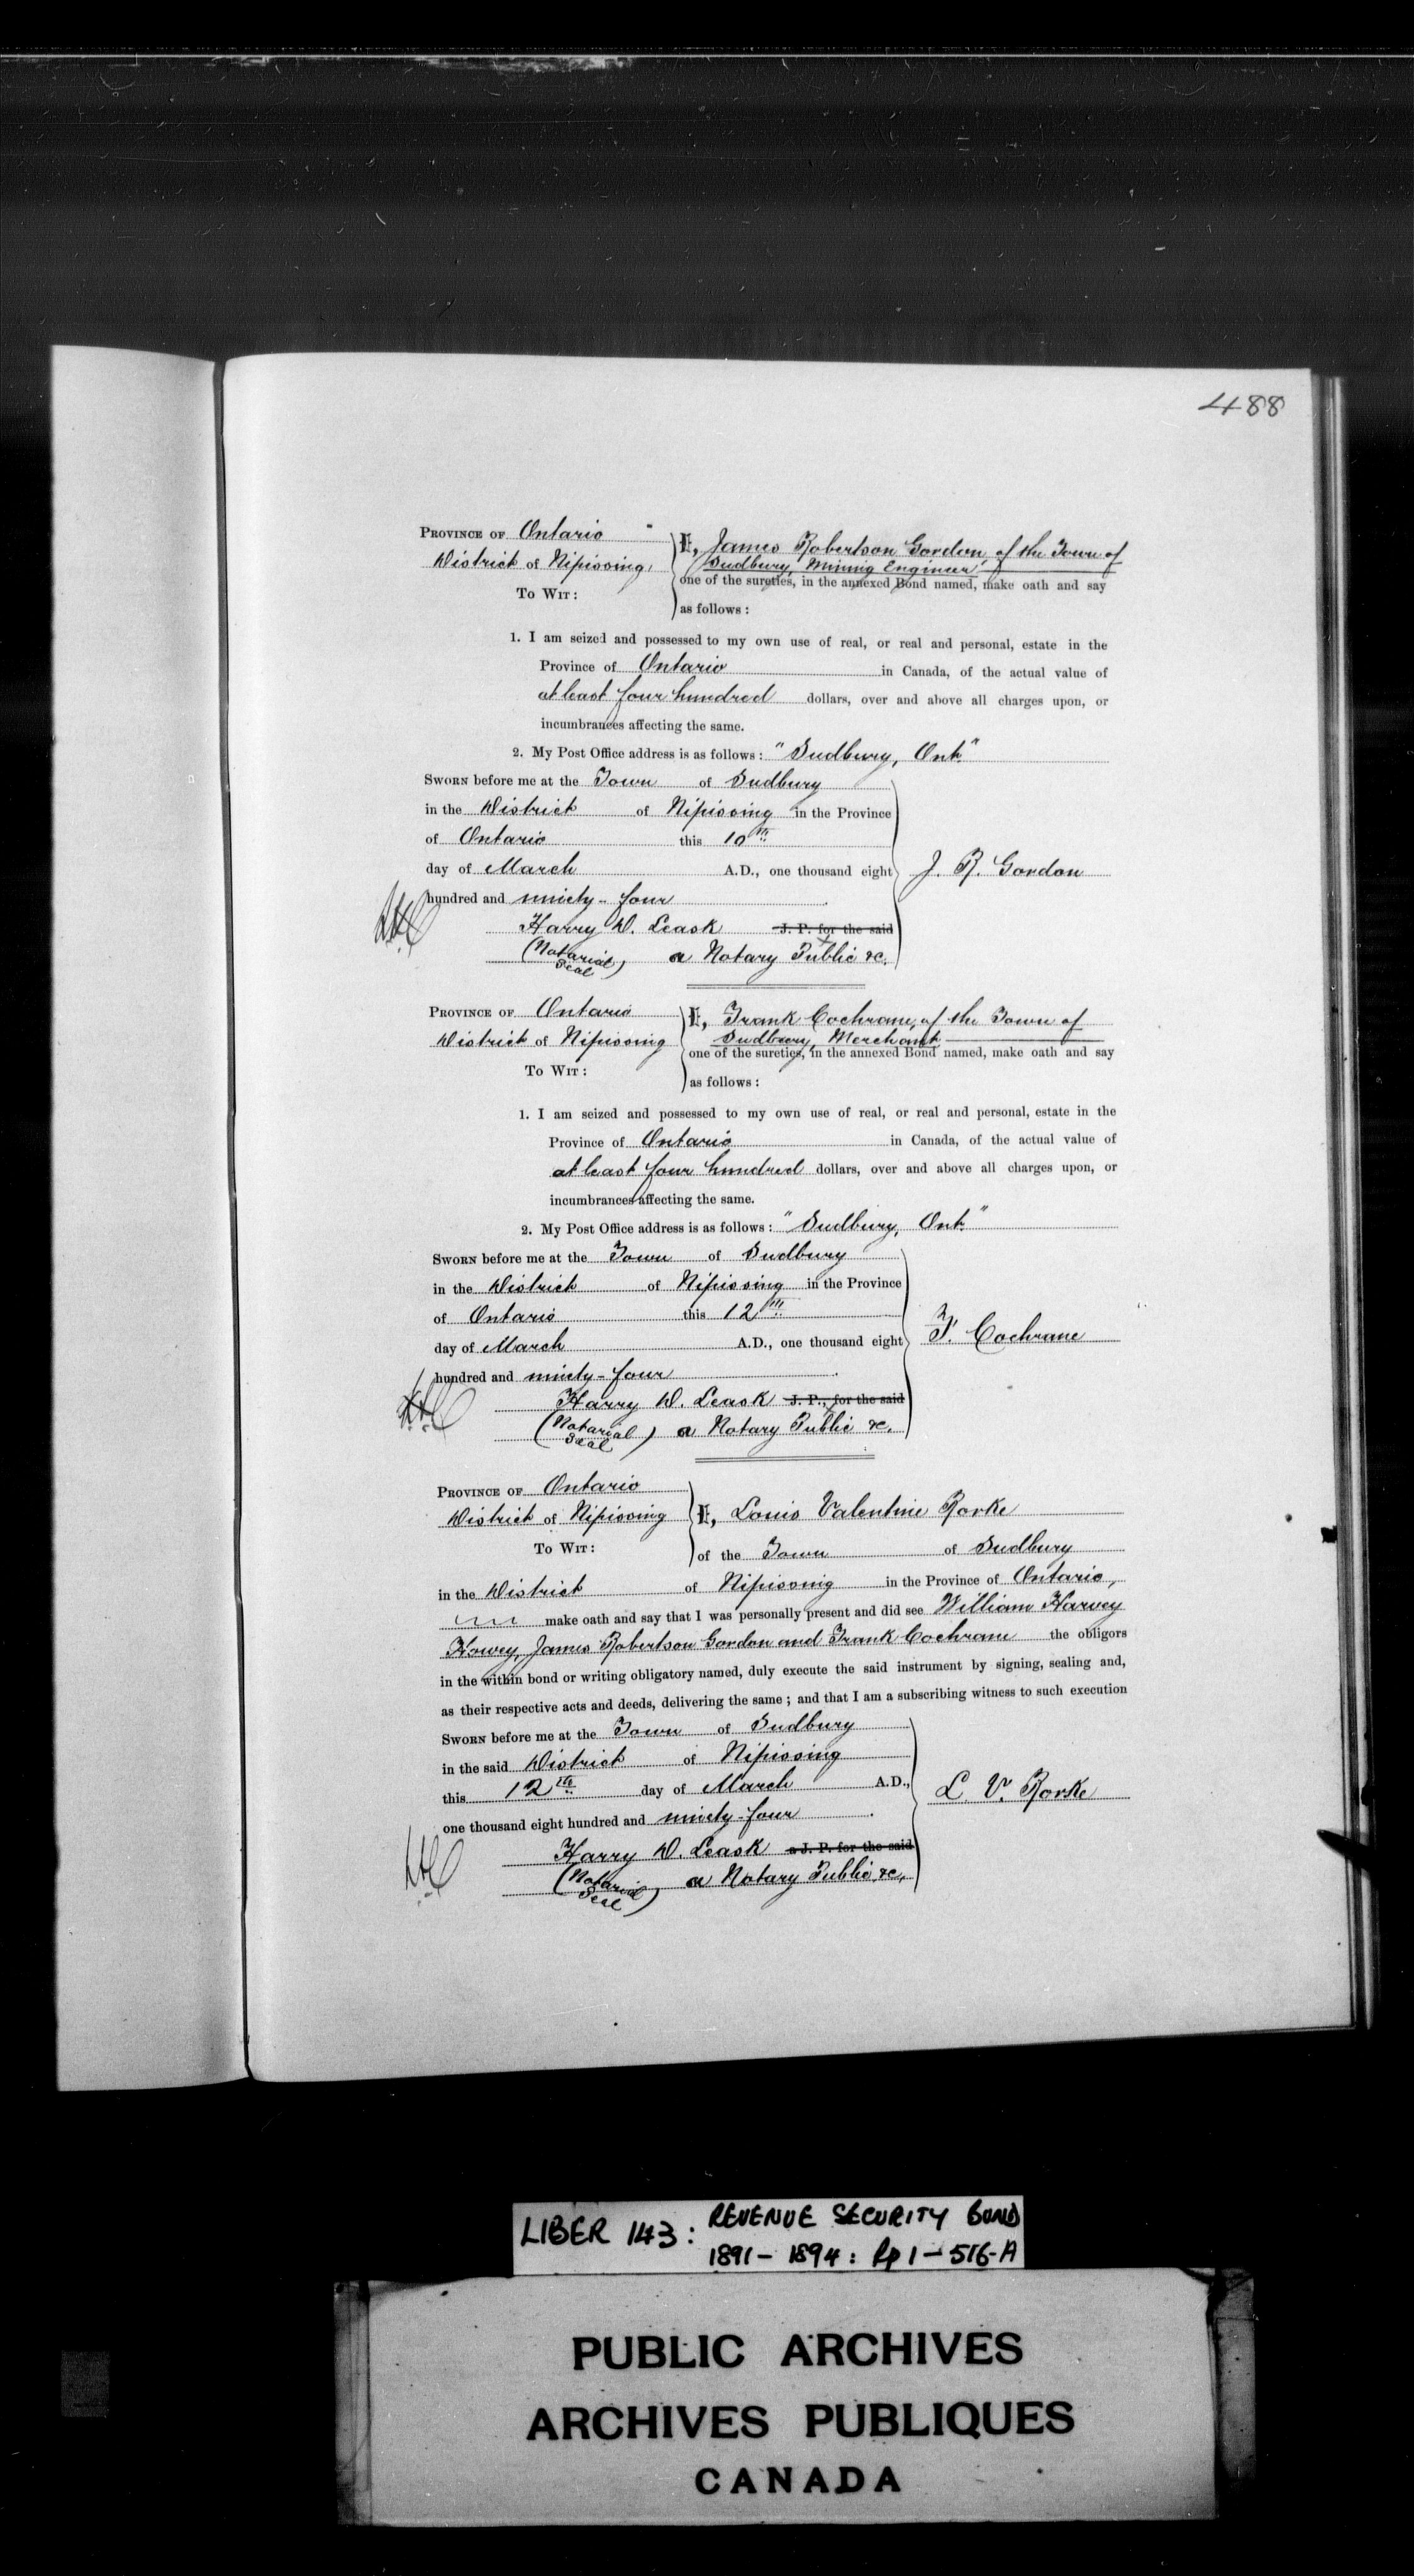 488
PROVINCE OF Ontario
District of Nipissing,
TO WIT:
I, James Robertson Gordon, of the Town of
Sudbury, Mining Engineer,
one of the sureties, in the annexed Bond named, make oath and say
as follows:
1. I am seized and possessed to my own use of real, or real and personal, estate in the
Province of Ontario in Canada, of the actual value of
at least four hundred dollars, over and above all charges upon, or
incumbrances affecting the same.
2. My Post Office address is as follows: "Sudbury, Ont."
SWORN before me at the Town of Sudbury
in the District of Nipissing in the Province
of Ontario this 10th
day of March A.D., one thousand eight
hundred and ninety-four
J. R. Gordon
Harry D. Leask J. P. for the said
(Notarial Seal) a Notary Public &c.
PROVINCE OF Ontario
District of Nipissing
TO WIT:
I, Frank Cochrane, of the Town of
Sudbury, Merchant
one of the sureties, in the annexed Bond named, make oath and say
as follows:
1. I am seized and possessed to my own use of real, or real and personal, estate in the
Province of Ontario in Canada, of the actual value of
at least four hundred dollars, over and above all charges upon, or
incumbrances affecting the same.
2. My Post Office address is as follows: "Sudbury, Ont."
SWORN before me at the Town of Sudbury
in the District of Nipissing in the Province
of Ontario this 12th
day of March A.D., one thousand eight
hundred and ninety-four
F. Cochrane
Harry D. Leask J. P., for the said
(Notarial Seal) a Notary Public &c.
PROVINCE OF Ontario
District of Nipissing
TO WIT:
I, Louis Valentine Rorke
of the Town of Sudbury
in the District of Nipissing in the Province of Ontario,
make oath and say that I was personally present and did see William Harvey
Howey, James Robertson Gordon and Frank Cochrane the obligors
in the within bond or writing obligatory named, duly execute the said instrument by signing, sealing and,
as their respective acts and deeds, delivering the same; and that I am a subscribing witness to such execution
SWORN before me at the Town of Sudbury
in the said District of Nipissing
this 12th day of March A.D.,
one thousand eight hundred and ninety-four
L. V. Rorke
Harry D. Leask a J. P. for the said
(Notarial Seal) a Notary Public, &c.,
LIBER 143: REVENUE SECURITY BOND
1891-1894: Pp 1-516-A
PUBLIC ARCHIVES
ARCHIVES PUBLIQUES
CANADA